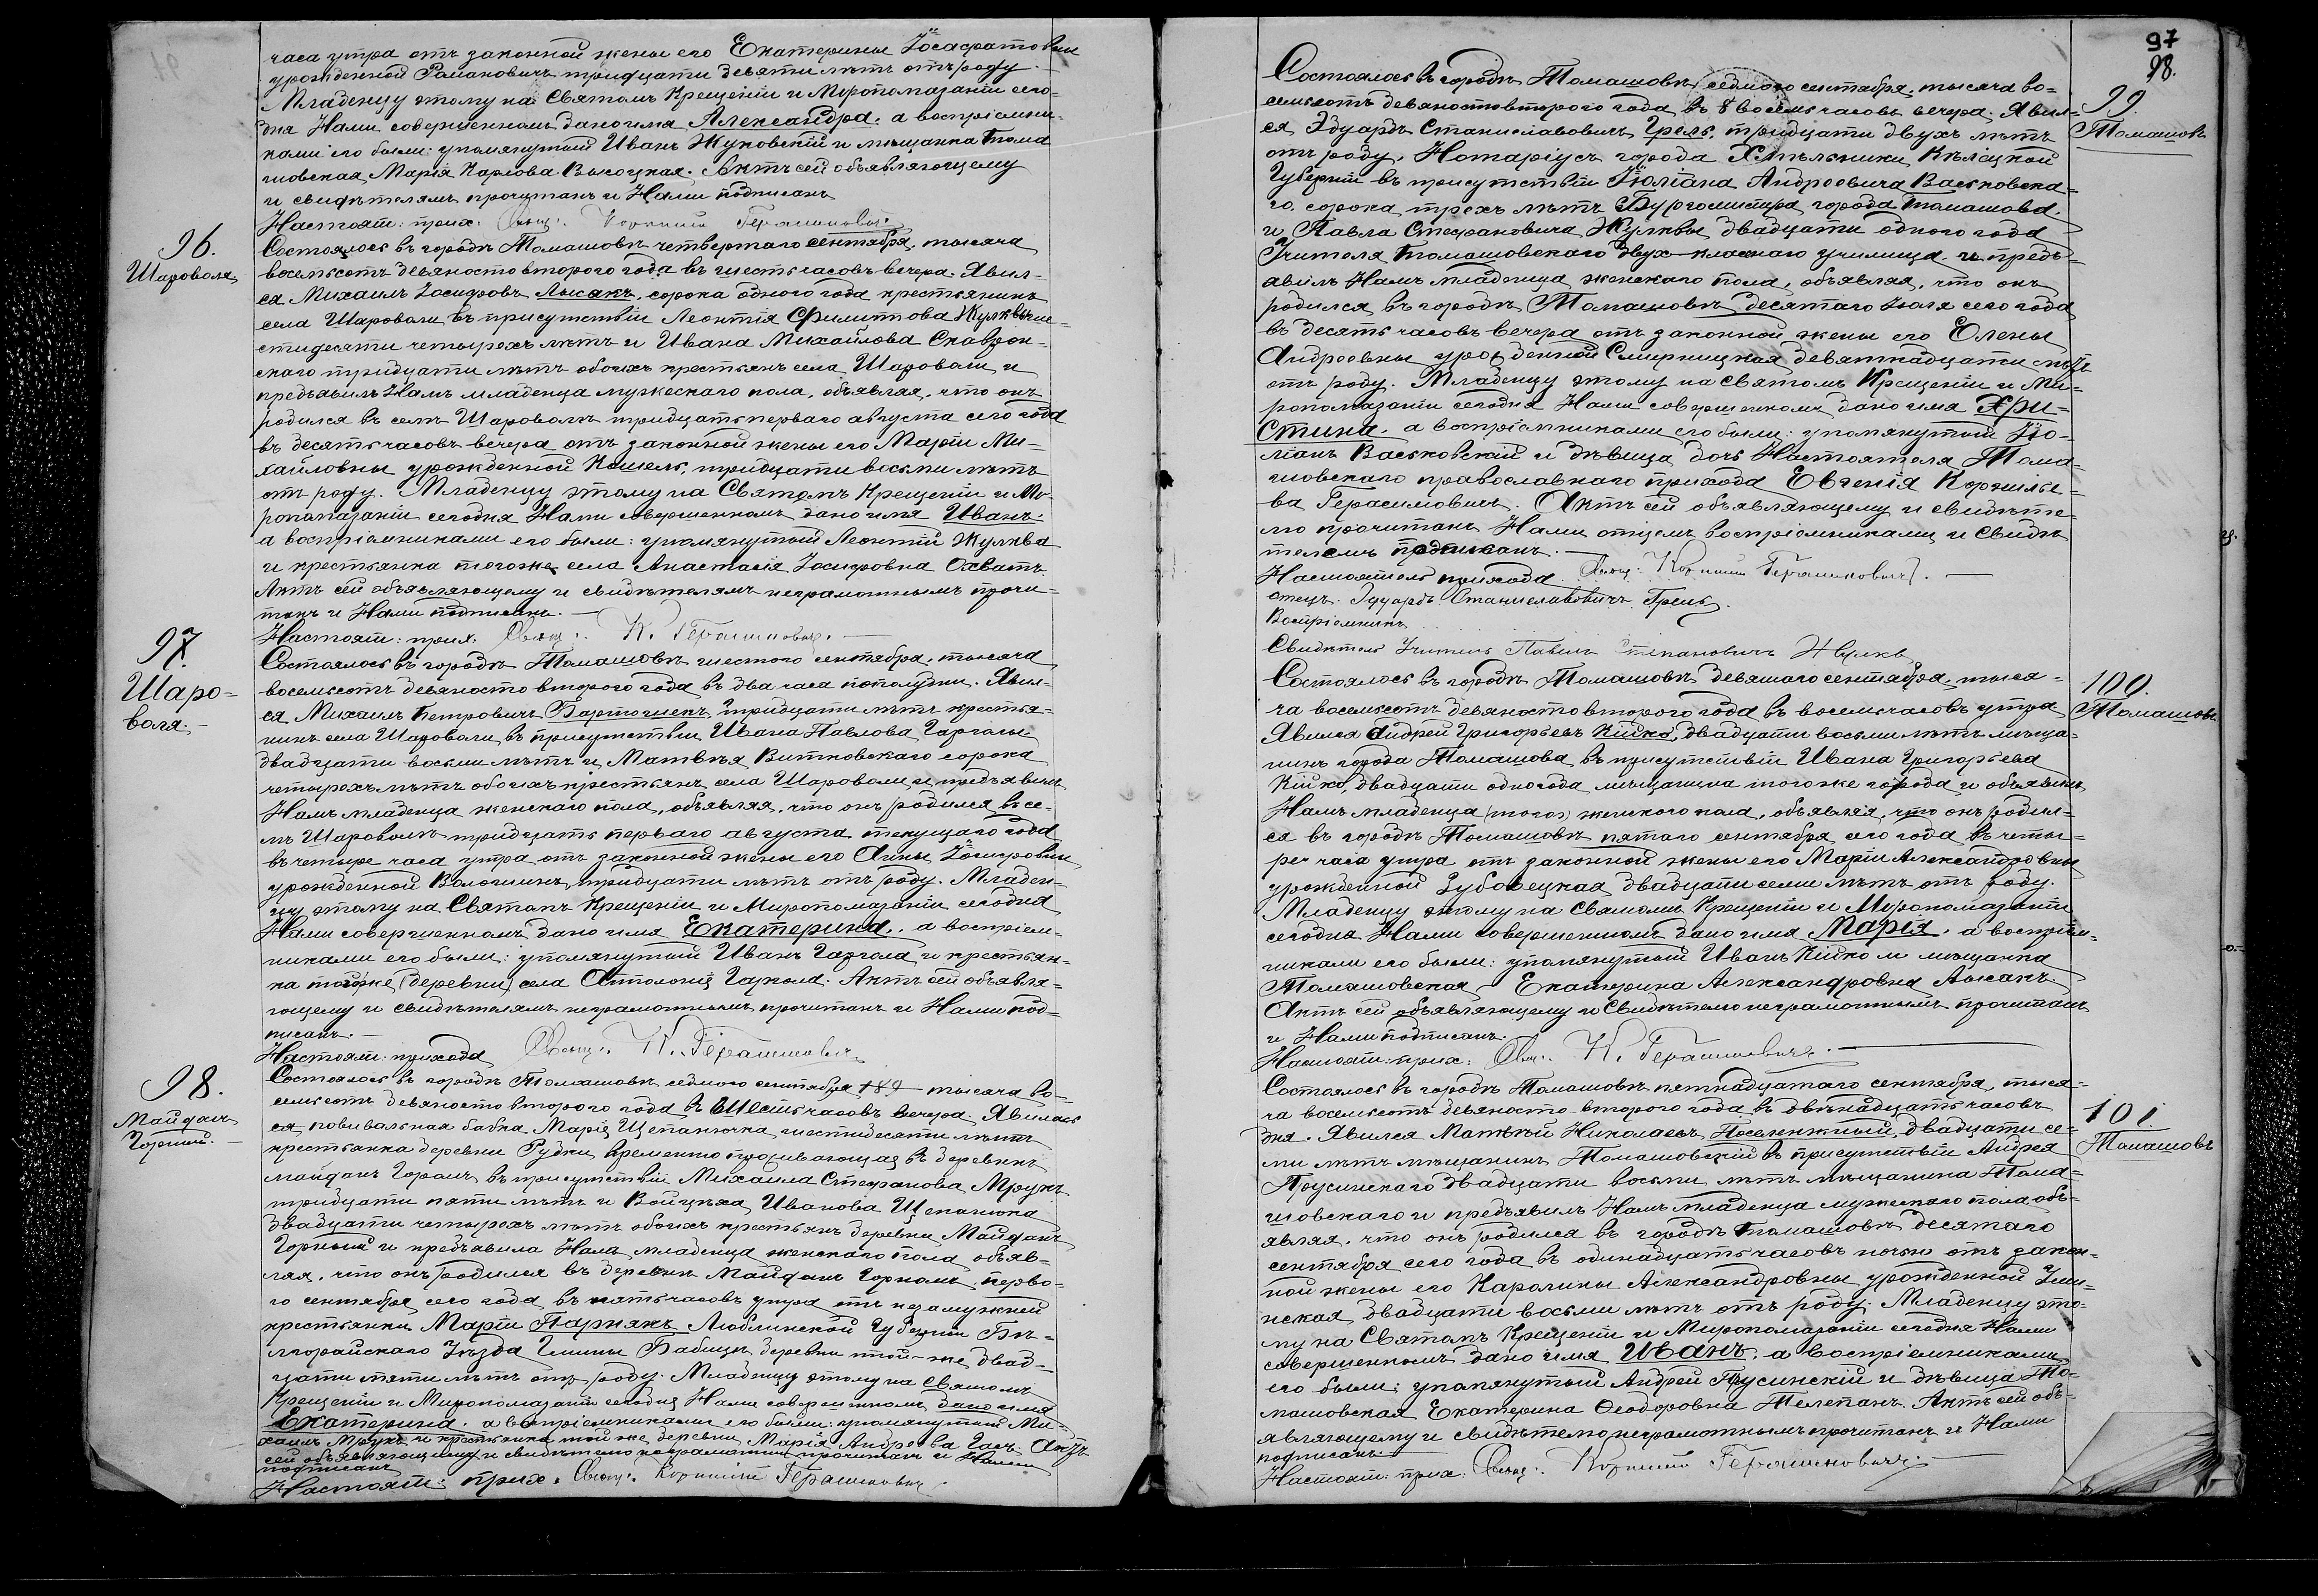 часа утра отъ законной жены его Екатерины Іосафатовны
урожденной Романовичъ тридцати девяти лѣтъ отъ роду.
Младенцу этому на Святомъ Крещеніи и Мѵропомазаніи сего-
дня Нами совершенномъ дано имя Александра. а воспріемни-
ками его были: упомянутый Иванъ Жуковскій и мѣщанка Тома
шовская Марія Карлова Высоцкая. Актъ сей объявляющему
и свидѣтелямъ прочитанъ и Нами подписанъ
Настоят: прих: Свящ: Корнилій Герасимовичъ
96.
Шароволя
Состоялось въ городѣ Томашовѣ четвертаго сентября, тысяча
восемьсотъ девяносто второго года въ шесть часовъ вечера. Явил-
ся Михаилъ Іосифовъ Лысакъ, сорока одного года крестьянинъ
села Шароволи въ присутствіи Леонтія Филиппова Жулквы ше-
стидесяти четырехъ лѣтъ и Ивана Михайлова Скаврон-
скаго тридцати лѣтъ обоихъ крестьянъ села Шароволи и
предъявилъ Намъ младенца мужескаго пола, объявляя, что онъ
родился въ селѣ Шароволѣ тридцать перваго августа сего года
въ десять часовъ вечера отъ законной жены его Маріи Ми-
хайловны урожденной Кошель, тридцати восьми лѣтъ
отъ роду. Младенцу этому на Святомъ Крещеніи и Мѵ-
ропомазаніи сегодня Нами совершенномъ дано имя Иванъ.
а воспріемниками его были: упомянутый Леонтій Жулква
и крестьянка тогоже села Анастасія Іосифовна Охватъ.
Актъ сей объявляющему и свидѣтелямъ неграмотнымъ прочи-
танъ и Нами подписанъ.
Настоят: прих. Свящ: К. Герасимовичъ.
97.
Шаро-
воля.
Состоялось въ городѣ Томашовѣ шестого сентября, тысяча
восемьсотъ девяносто второго года въ два часа пополудни. Явил-
ся Михаилъ Петровичъ Бартошекъ, тридцати лѣтъ крестья-
нинъ села Шароволи, въ присутствіи Ивана Павлова Гаргалы
двадцати восьми лѣтъ и Матвѣя Витковскаго сорока
четырехъ лѣтъ обоихъ крестьянъ села Шароволи, и предъявилъ
Намъ младенца женскаго пола, объявляя, что онъ родился въ се-
лѣ Шароволѣ тридцать перваго августа текущаго года
въ четыре часа утра отъ законной жены его Анны Іосифовны
урожденной Волошинъ, тридцати лѣтъ отъ роду. Младен-
цу этому на Святомъ Крещеніи и Мѵропомазаніи сегодня
Нами совершенномъ дано имя Екатерина. а воспріем-
никами его были: упомянутый Иванъ Гаргала и крестьян-
ка тойже (деревни) села Гаргола. Актъ сей объявля-
ющему и свидѣтелямъ неграмотнымъ прочитанъ и Нами под-
писанъ.
Настоят: прихода Свящ: К. Герасимовичъ
98.
Майданъ
Горный.
Состоялось въ городѣ Томашовѣ седмого сентября 189 тысяча во-
семьсотъ девяносто второго года въ шесть часовъ вечера. Явилась
ся повивальная бабка Марія Щепанючка, шестидесяти лѣтъ
крестьянка деревни Рудки временно проживающая въ деревнѣ
майданъ Горномъ въ присутствіи Михаила Стефанова Мрукъ
тридцати пяти лѣтъ и Войцѣха Иванова Щепанюка
двадцати четырехъ лѣтъ обоихъ крестьянъ деревни Майданъ
Горный и предъявила Намъ младенца женскаго пола объяв-
ляя, что онъ родился въ деревнѣ Майданъ Горномъ, перво-
го сентября сего года въ пять часовъ утра отъ незамужней
крестьянки Маріи Парнякъ Люблинской Губерніи Бѣ-
лгорайскаго Уѣзда Гмины Бабицы деревни той-же двад-
цати пяти лѣтъ отъ роду. Младенцу этому на Святомъ
Крещеніи и Мѵропомазаніи сегодня Нами совершенномъ дано имя
Екатерина. а воспріемниками его были: упомянутый Ми-
хаилъ Мрукъ и крестьянка той же деревни Марія Андреева Гасъ. Актъ
сей объявляющему и свидѣтелю неграмотнымъ прочитанъ и Нами
подписанъ
Настоят: прих: Свящ: Корнилій Герасимовичъ
97
98.
99.
Томашовъ
Состоялось въ городѣ Томашовѣ седмого сентября, тысяча во-
семьсотъ девяносто второго года въ 8 восемь часовъ вечера. Явил-
ся Эдуардъ Станиславовичъ Грель, тридцати двухъ лѣтъ
отъ роду, Нотаріусъ города Хмѣльники Кѣлецкой
Губерніи въ присутствіи Юліана Андреевича Васьковска-
го сорока трехъ лѣтъ Бургомистра города Томашова,
и Павла Стефановича Жулквы двадцати одного года
Учителя Томашовскаго двух-класснаго училища и предъ-
авилъ Намъ младенца женскаго пола, объявляя, что онъ
родился въ городѣ Томашовѣ десятаго Іюля сего года
въ десять часовъ вечера отъ законной жены его Елены
Андреевны урожденной Смирницкая девятнадцати лѣтъ
отъ роду. Младенцу этому на Святомъ Крещеніи и Мѵ-
ропомазаніи сегодня Нами совершенномъ дано имя Хри-
стина. а воспріемниками его были: упомянутый Юо-
ліанъ Васьковскій и дѣвица дочь Настоятеля Тома-
шовскаго православнаго прихода Евгенія Корнилье-
ва Герасимовичъ. Актъ сей объявляющему и свидѣте-
лю прочитанъ Нами отцемъ воспріемниками и Свидѣ
телемъ подписанъ.
Настоятель прихода Свящ: Корнилій Герасимовичъ.
отецъ: Эдуардъ Станиславовичъ Грель.
Воспріемникъ
Свидѣтель Учитель Павелъ Степановичъ Жулква
100.
Томашовъ
Состоялось въ городѣ Томашовѣ девятаго сентября, тыся-
ча восемьсотъ девяносто второго года въ восемь часовъ утра
Явился Андрей Григорьевъ Кійко, двадцати восьми лѣтъ мѣща-
нинъ города Томашова въ присутствіи Ивана Григорьева
Кійко, двадцати одногода мѣщанина тогоже города и объявилъ
Намъ младенца (того) женскаго пола, объявляя, что онъ родил-
ся въ городѣ Томашовѣ пятаго сентября сего года въ четы-
ре часа утра отъ законной жены его Маріи Александровны
урожденной Зубовецкая двадцати семи лѣтъ отъ роду.
Младенцу этому на Святомъ Крещеніи и Мѵропомазаніи
сегодня Нами совершенномъ дано имя Марія. а воспріем-
никами его были: упомянутый Иванъ Кійко и мѣщанка
Томашовская Екатерина Александровна Лысакъ.
Актъ сей объявляющему и Свидѣтелю неграмотнымъ прочитанъ
и Нами подписанъ.
Настоят: прих: Свящ: К. Герасимовичъ.
101.
Томашовъ
Состоялось въ городѣ Томашовѣ пятнадцатаго сентября, тыся-
ча восемьсотъ девяносто второго года въ двѣнадцать часовъ
дня. Явился Матвѣй Николаевъ двадцати се-
ми лѣтъ мѣщанинъ Томашовскій въ присутствіи Андрея
Прусинскаго двадцати восьми лѣтъ мѣщанина Тома-
шовскаго и предъявилъ Намъ младенца мужескаго пола объ-
являя, что онъ родился въ городѣ Томашовѣ десятаго
сентября сего года въ одинадцать часовъ ночью отъ закон-
ной жены его Каролины Александровны урожденной Зли-
нская двадцати восьми лѣтъ отъ роду. Младенцу это-
му на Святомъ Крещеніи и Мѵропомазаніи сегодня Нами
совершенномъ дано имя Иванъ. а воспріемниками
его были: упомянутый Андрей Прусинскій и дѣвица То-
машовская Екатерина Ѳеодоровна Телепанъ. Актъ сей объ-
являющему и свидѣтелю неграмотнымъ прочитанъ и Нами
подписанъ.
Настоят: прих: Свящ: Корнилій Герасимовичъ.